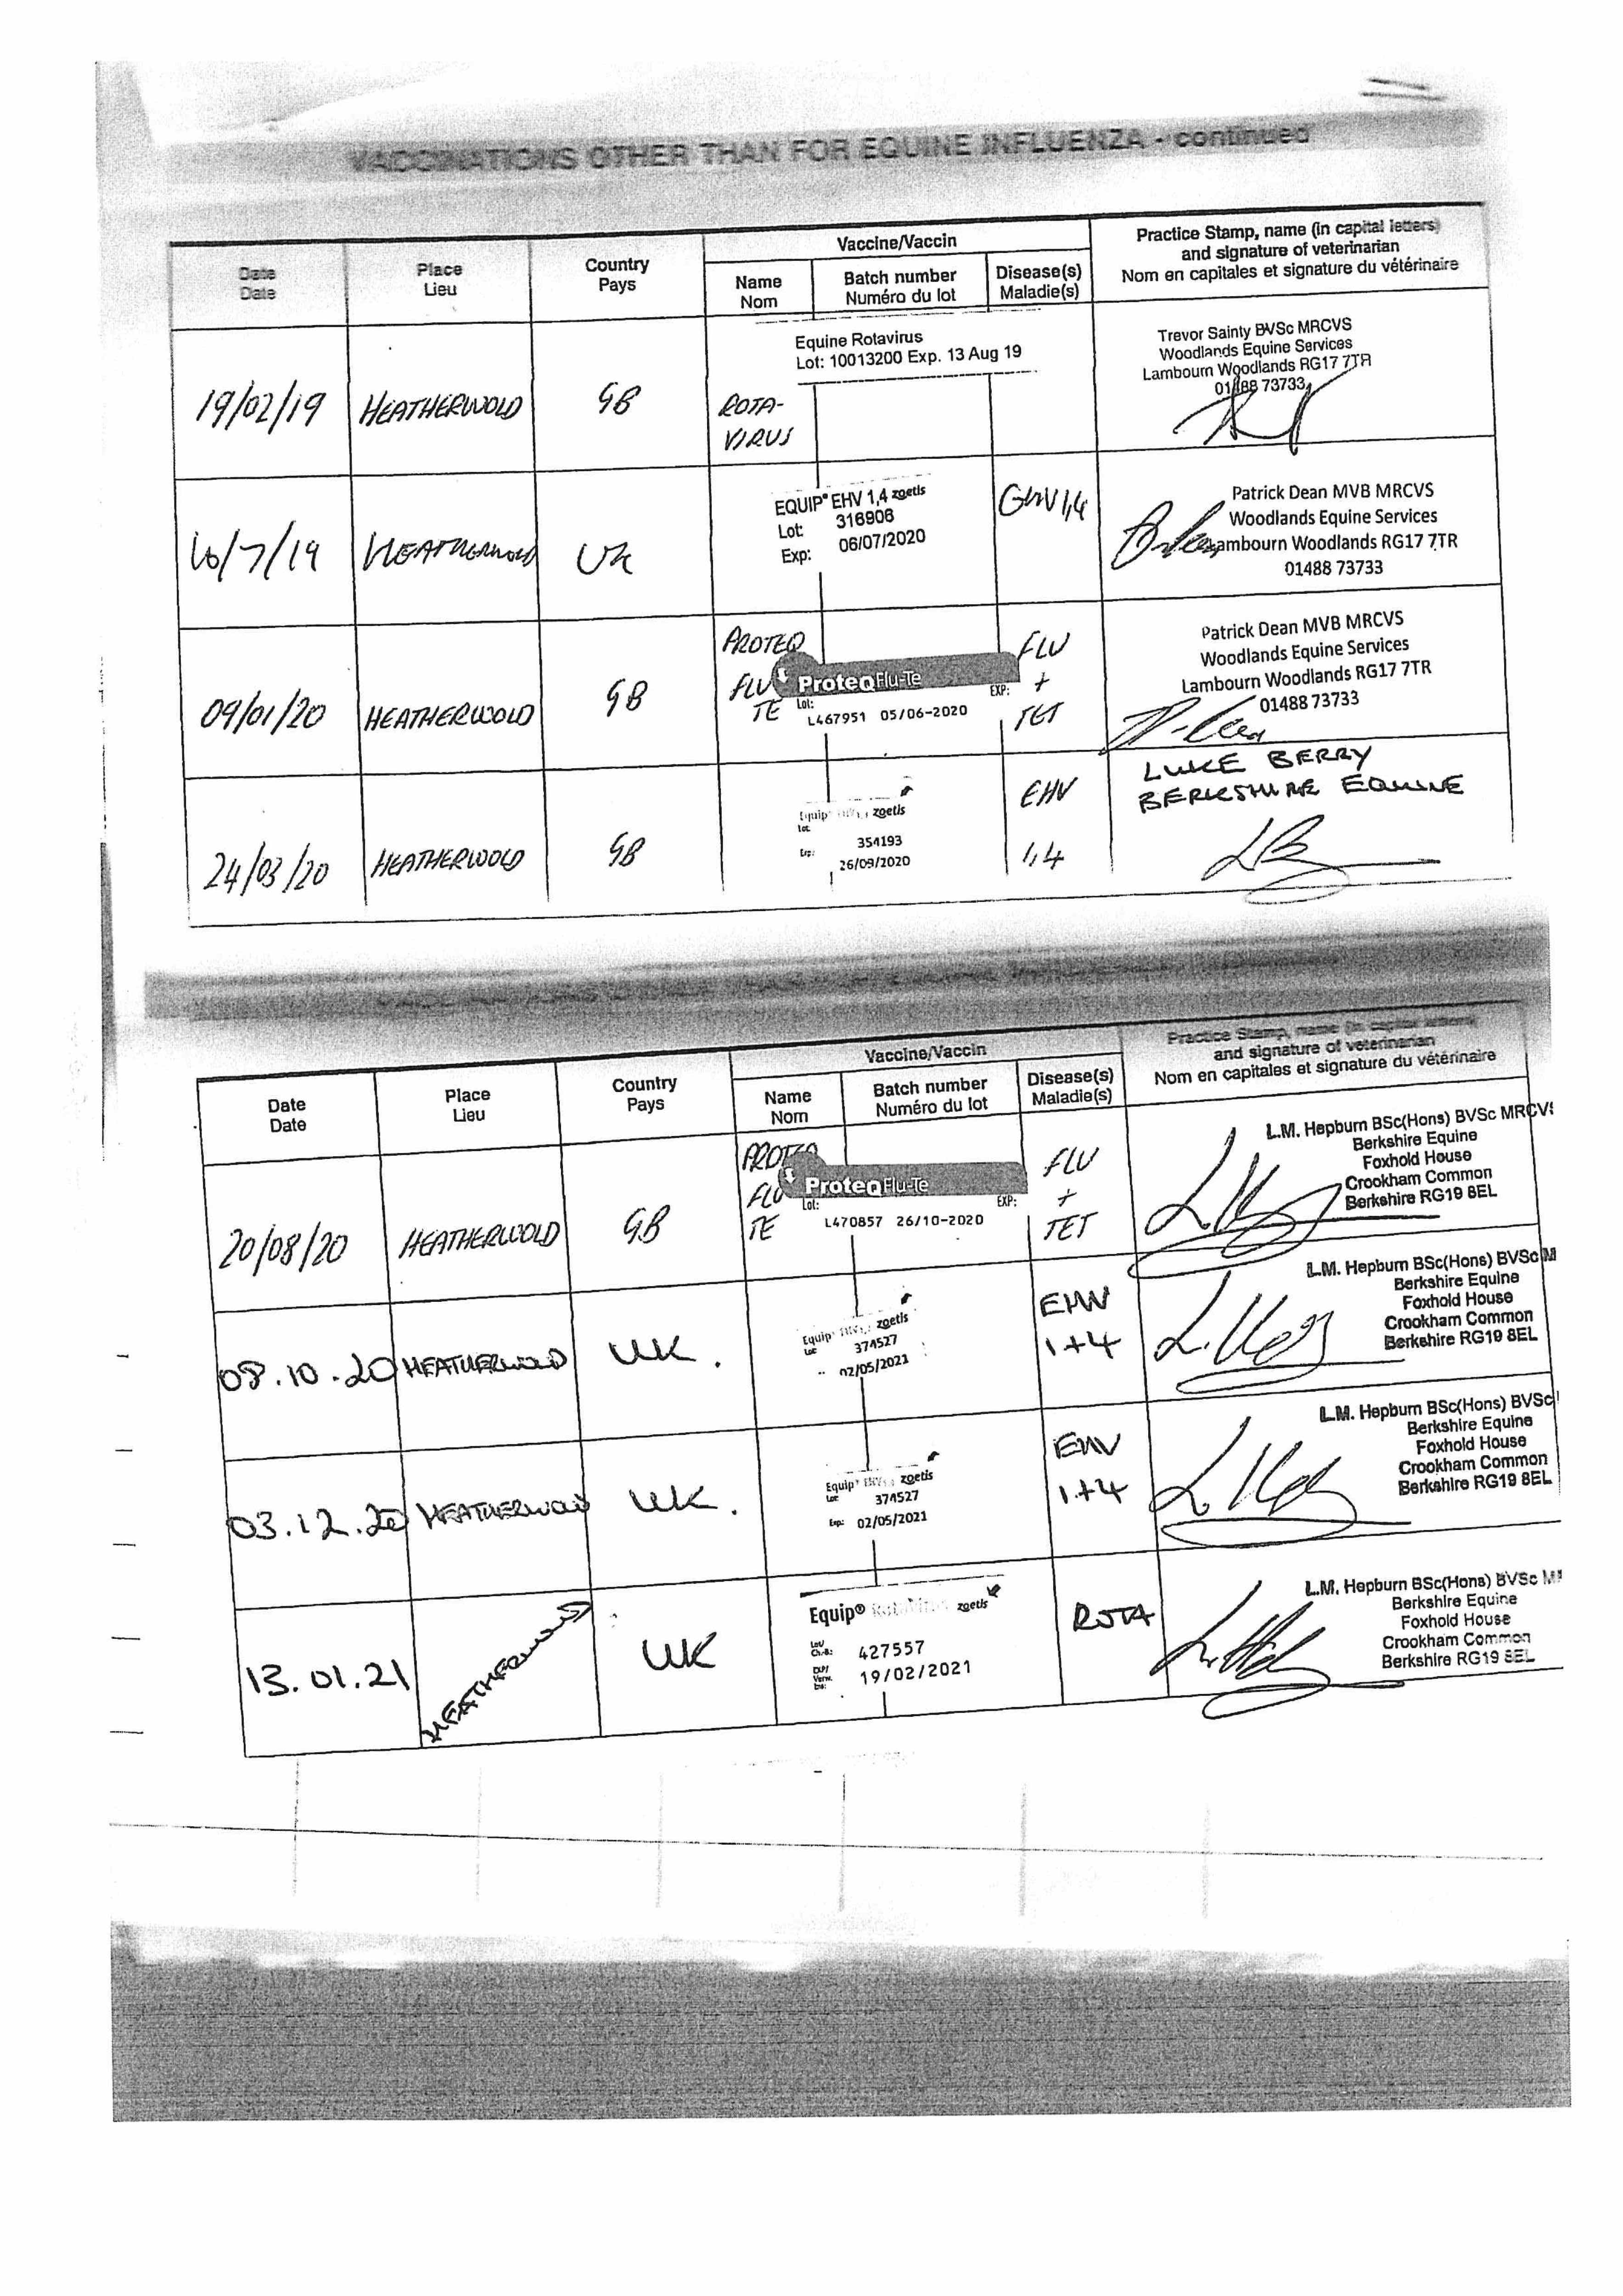 VACCINATIONS OTHER THAN FOR EQUINE INFLUENZA - continued
Date
Date
Place
Lieu
Country
Pays
Vaccine/Vaccin
Name
Nom
Batch number
Numéro du lot
Disease(s)
Maladie(s)
Practice Stamp, name (in capital letters)
and signature of veterinarian
Nom en capitales et signature du vétérinaire
19/02/19
HEATHERWOLD
GB
Equine Rotavirus
Lot: 10013200 Exp. 13 Aug 19
ROTA-
VIRUS
Trevor Sainty BVSc MRCVS
Woodlands Equine Services
Lambourn Woodlands RG17 7TR
01488 73733
/7/19
HEATHERWOLD
UK
EQUIP® EHV 1,4 zoetis
Lot: 316906
Exp: 06/07/2020
EHV 1,4
Patrick Dean MVB MRCVS
Woodlands Equine Services
Lambourn Woodlands RG17 7TR
01488 73733
09/01/20
HEATHERWOLD
GB
PROTEQ
FLU
TE
ProteqFlu-Te
Lot: EXP:
L467951 05/06-2020
FLU
+
TET
Patrick Dean MVB MRCVS
Woodlands Equine Services
Lambourn Woodlands RG17 7TR
01488 73733
24/03/20
HEATHERWOLD
GB
Equip® zoetis
Lot:
354193
Exp: 26/09/2020
EHV
1,4
LUKE BERRY
BERKSHIRE EQUINE
LB
Date
Date
Place
Lieu
Country
Pays
Vaccine/Vaccin
Name
Nom
Batch number
Numéro du lot
Disease(s)
Maladie(s)
Practice Stamp, name (in capital letters)
and signature of veterinarian
Nom en capitales et signature du vétérinaire
20/08/20
HEATHERWOLD
GB
PROTEQ
FLU
TE
ProteqFlu-Te
Lot: EXP:
L470857 26/10-2020
FLU
+
TET
L.M. Hepburn BSc(Hons) BVSc MRCVS
Berkshire Equine
Foxhold House
Crookham Common
Berkshire RG19 8EL
08.10.20
HEATHERWOLD
UK.
Equip® EHV zoetis
Lot: 374527
02/05/2021
EHV
1+4
L.M. Hepburn BSc(Hons) BVSc M
Berkshire Equine
Foxhold House
Crookham Common
Berkshire RG19 8EL
03.12.20
HEATHERWOLD
UK.
Equip® EHV zoetis
Lot: 374527
Exp: 02/05/2021
EHV
1+4
L.M. Hepburn BSc(Hons) BVSc
Berkshire Equine
Foxhold House
Crookham Common
Berkshire RG19 8EL
13.01.21
HEATHERWOLD
UK
Equip® Rotavirus zoetis
Lot/
Ch.-B.: 427557
EXP/
Verw.
bis: 19/02/2021
ROTA
L.M. Hepburn BSc(Hons) BVSc M
Berkshire Equine
Foxhold House
Crookham Common
Berkshire RG19 8EL